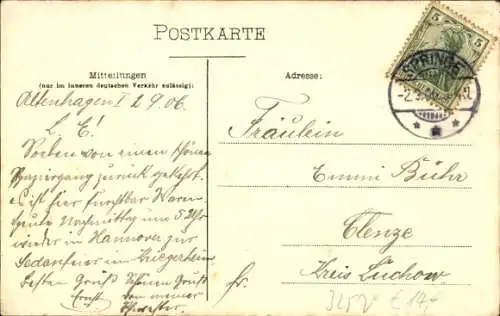 POSTKARTE
Mitteilungen
(nur im inneren deutschen Verkehr zulässig):
Altenhagen I 2.9.06.
L. E!
Soeben von einen schönen
Spaziergang zurück gekehrt.
Es ist hier furchtbar Warm
heute Nachmittag um 5 Uhr
wieder in Hannover zur
Sedanfeier im Kriegerheim
besten Gruß Schönen Gruß
Ernst. von meiner
Schwester.
Adresse:
Fräulein
Emmi Bühr
Clenze
Kreis Luchow
Fr.
5 5
SPRINGE